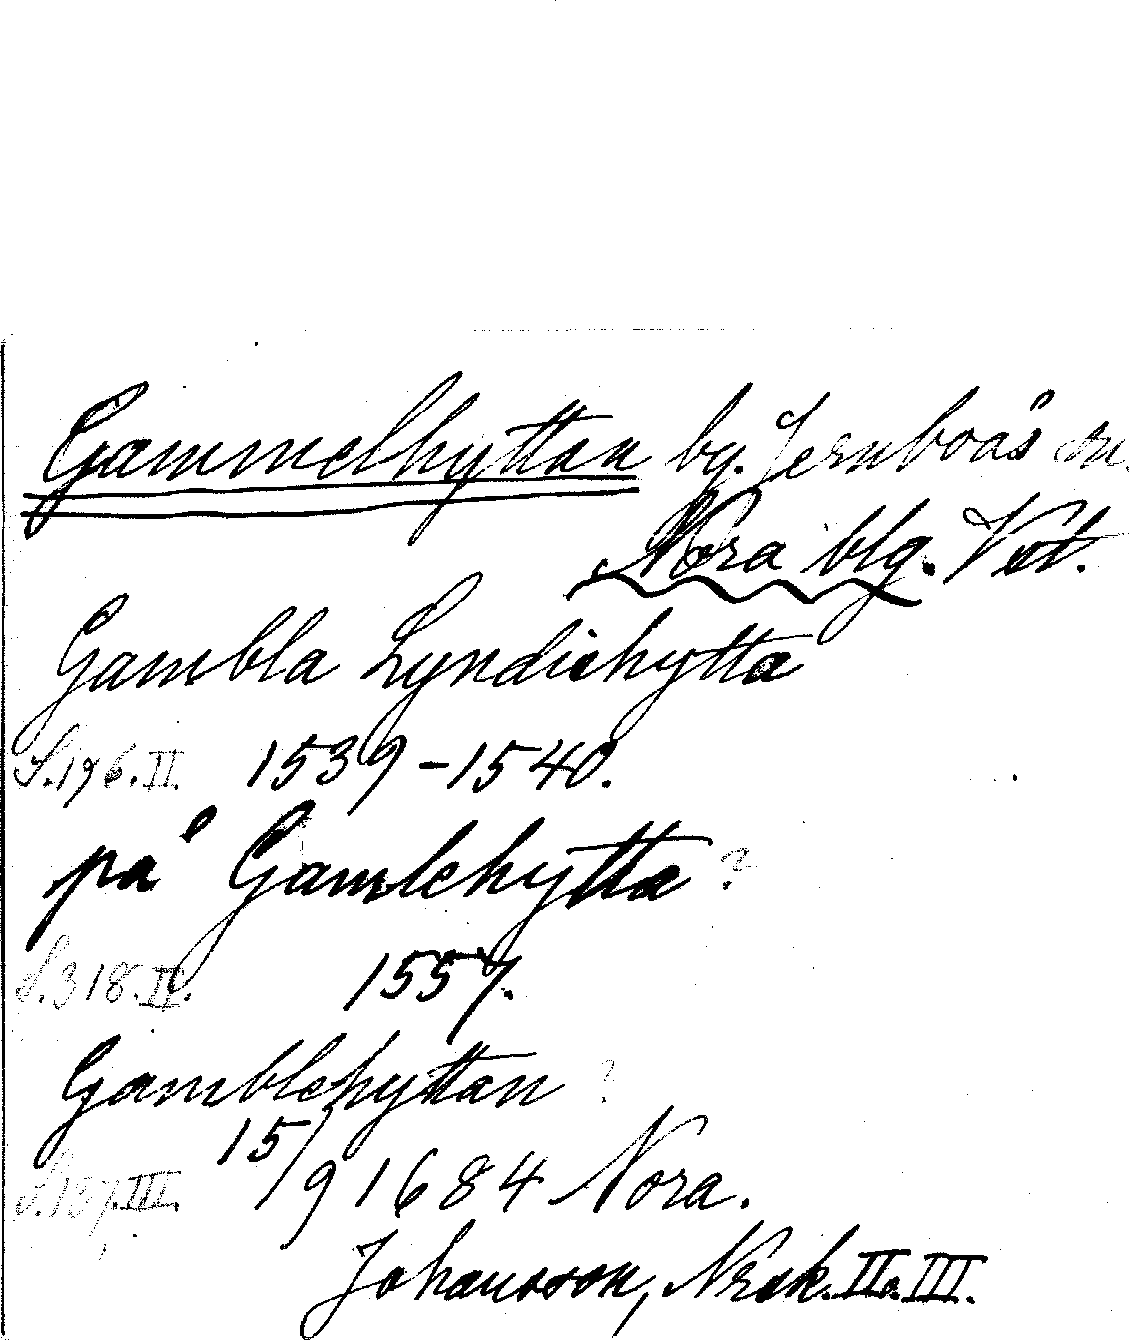 Gammelhyttan by. Jernboås sn.
Nora blg. Vstl.
Gambla Lyndiehytta
S.196.II. 1539-1540.
på Gamlehytta ?
S.318.II. 1557.
Gamblehyttan ?
15/9 1684 Nora.
S.137.III.
Johansson, Nrak. II o. III.